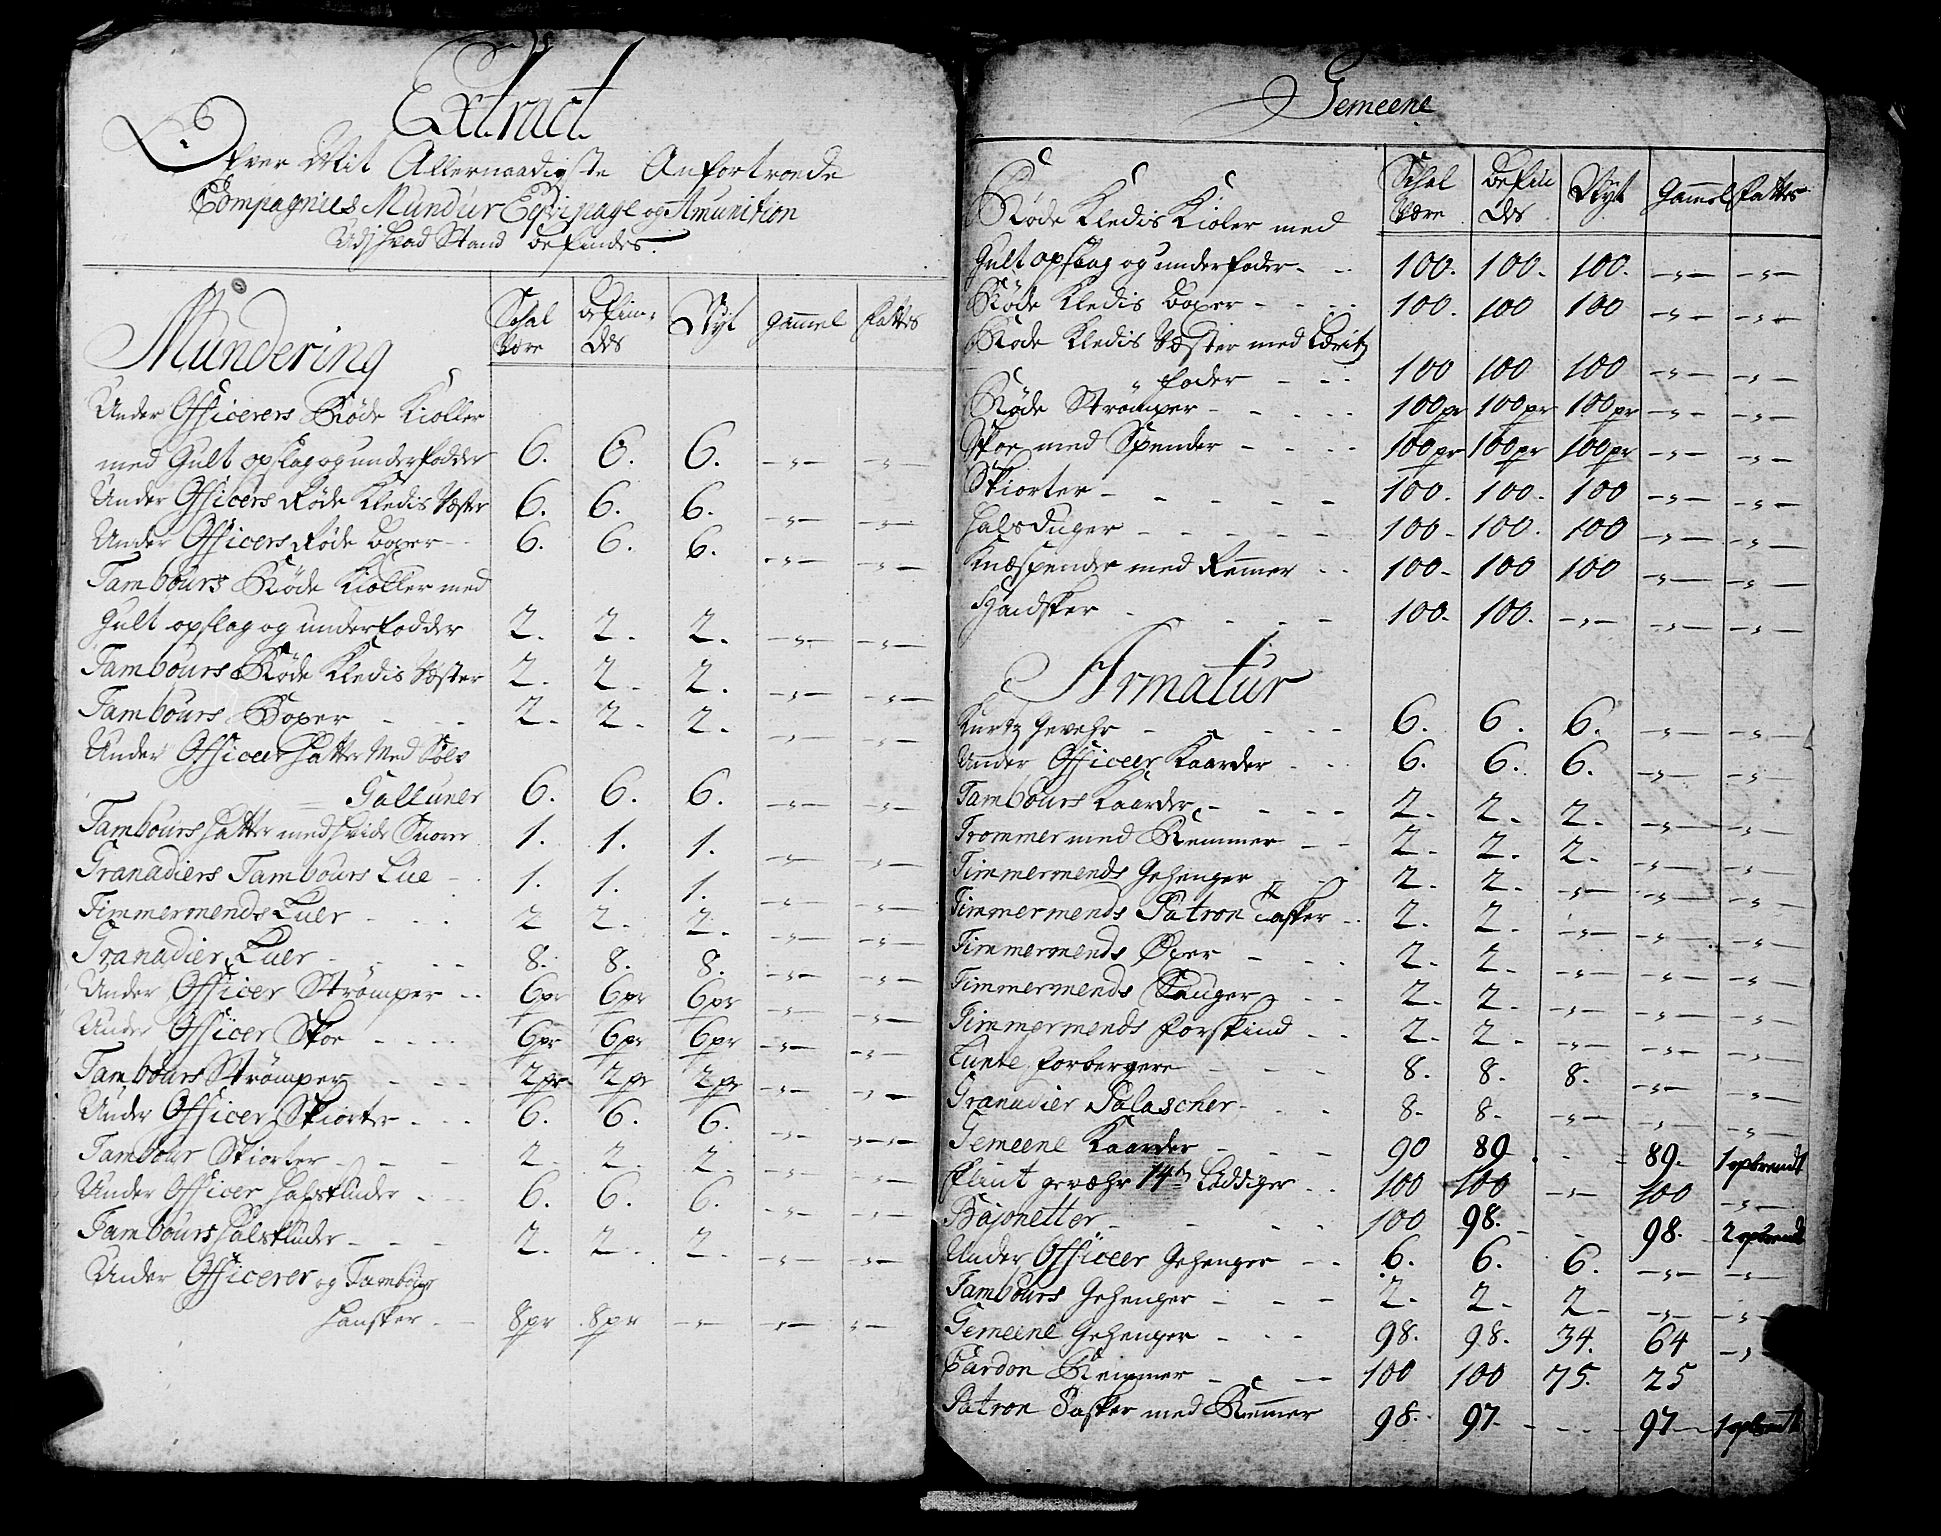 Extract
Ofver Mit Allernaadigste Anfortroede
Compagnies Mundur Eqvipage og Amunition
Udj hvad Stand befindes.
Mundering | Schal Være | befin- des | Nyt | gammel | fattes
Under Officerers Røde Kioller
med Gult opslag og underfodder 6. 6. 6. —„— —„—
Under Officers Røde Kledis Vester 6. 6. 6. —„— —„—
Under Officers Røde boxer — 6. 6. 6. —„— —„—
Tambours Røde Kioller med
Gult opslag og underfodder 2. 2. 2. —„— —„—
Tambours Røde Kledis Vester 2. 2. 2. —„— —„—
Tambours Boxer - - - 2. 2. 2. —„— —„—
Under Officeer hatte Med Sølv
Galluner 6. 6. 6. —„— —„—
Tambours hatte med hvide Snorer 1. 1. 1. —„— —„—
Granadiers Tambours Lue - 1. 1. 1. —„— —„—
Timmermends Luer - - - 2 2. 2. —„— —„—
Granadier Luer - - - - 8. 8. 8. —„— —„—
Under Officer Strømper - - 6pr 6pr 6pr —„— —„—
Under Officer Skoe - - - - 6pr 6pr 6pr —„— —„—
Tambours Strømper - - - 2pr 2pr 2pr —„— —„—
Under Officer Skiorter - - - 6. 6. 6. —„— —„—
Tambour Skiorter - - - 2. 2. 2. —„— —„—
Under Officer halskluder - - 6. 6. 6. —„— —„—
Tambours halskluder - - - 2. 2. 2. —„— —„—
Under Officerer og Tambours
hansker - - 8pr 8pr —„— —„— —„—
Gemeene
Schal Være | befin des | Nyt | gammel | fattes
Røde Kledis Kioler med
Gult opslag og underfoder - - 100. 100. 100. —„— —„—
Røde Kledis boxer - - - - 100. 100 100 —„— —„—
Røde Kledis Vester med Lærits
„ foder - - - 100 100 100 —„— —„—
Røde Strømper - - - - 100pr 100pr 100pr —„— —„—
Skoe med Spender - - - - 100pr 100pr 100pr —„— —„—
Skiorter - - - - - 100. 100. 100 —„— —„—
halsduger - - - - - 100. 100. 100 —„— —„—
Knæspender med Remer - - 100. 100 100 —„— —„—
Handsker - - - - 100. 100. —„— —„— —„—
Armatur
Kurtz gevehr - - - - - 6. 6. 6. —„— —„—
Under Officeer Kaarder - - 6. 6. 6. —„— —„—
Tambours Kaarder - - - - 2. 2. 2. —„— —„—
Trommer med Remmer - - 2. 2. 2. —„— —„—
Timmermends Gehenger - - 2. 2. —„— —„— —„—
Timmermends Patron Tasker - - 2. 2. —„— —„— —„—
Timmermends Øxer - - - 2. 2. —„— —„— —„—
Timmermends Sauger - - - 2. 2. —„— —„— —„—
Timmermends forskind - - 2. 2. —„— —„— —„—
Lunte forbergere - - - 8. 8. 8. —„— —„—
Granadier Palascher - - - 8. 8. —„— —„— —„—
Gemeene Kaarder - - - 90 89 - - 89. 1 opbrendt
flint gevæhr 14 Läddiger - - 100 100 —„— 100 —„—
Bajonetter - - - - 100 98. - - 98. 2 opbrendt
Under Officeer Gehenger - - 6. 6. 6. —„— —„—
Tambours Gehenger - - - 2. 2. 2. —„— —„—
Gemeene Gehenger - - - 98. 98. 34. 64 —„—
Cardon Remmer - - - 100 100 75. 25
Patron Tasker med Remmer 98. 97. - - - 97 1 opbrendt